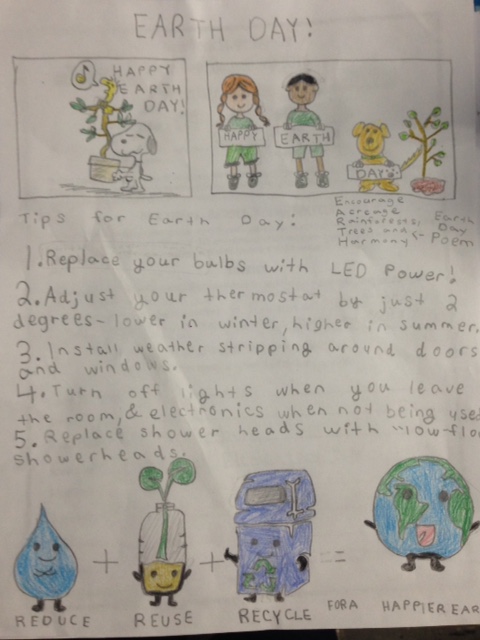 EARTH DAY!
HAPPY
EARTH
DAY!
HAPPY
EARTH
DAY
Tips for Earth Day:
Encourage
Acreage
Rainforests,
Trees and
Harmony
Earth
Day
Poem
1. Replace your bulbs with LED Power!
2. Adjust your thermostat by just 2
degrees- lower in winter, higher in summer.
3. Install weather stripping around doors
and windows.
4. Turn off lights when you leave
the room, & electronics when not being used
5. Replace shower heads with "low-flo
showerheads.
+ + =
REDUCE REUSE RECYCLE FOR A HAPPIER EAR